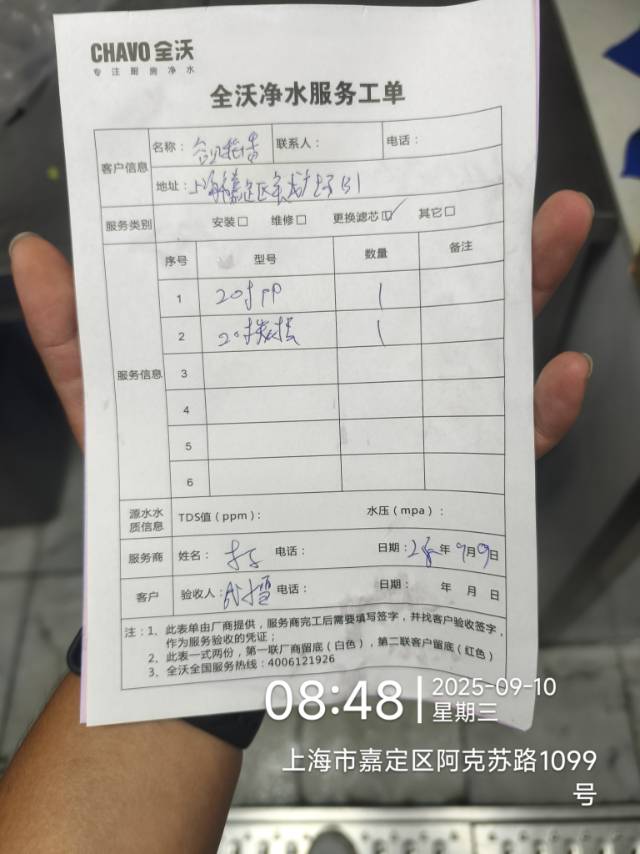 CHAVO 全沃
专注厨房净水
全沃净水服务工单
客户信息 名称: 联系人: 电话:
地址: 上海 嘉定区
服务类别 安装□ 维修□ 更换滤芯☑ 其它□
服务信息
序号 型号 数量 备注
1 20寸PP 1
2 20寸 1
3
4
5
6
源水水质信息 TDS值(ppm): 水压(mpa):
服务商 姓名: 电话: 日期: 年 9月9日
客户 验收人: 电话: 日期: 年 月 日
注:1、此表单由厂商提供,服务商完工后需要填写签字,并找客户验收签字,
作为服务验收的凭证;
2、此表一式两份,第一联厂商留底(白色),第二联客户留底(红色)
3、全沃全国服务热线:4006121926
08:48 2025-09-10
星期三
上海市嘉定区阿克苏路1099
号